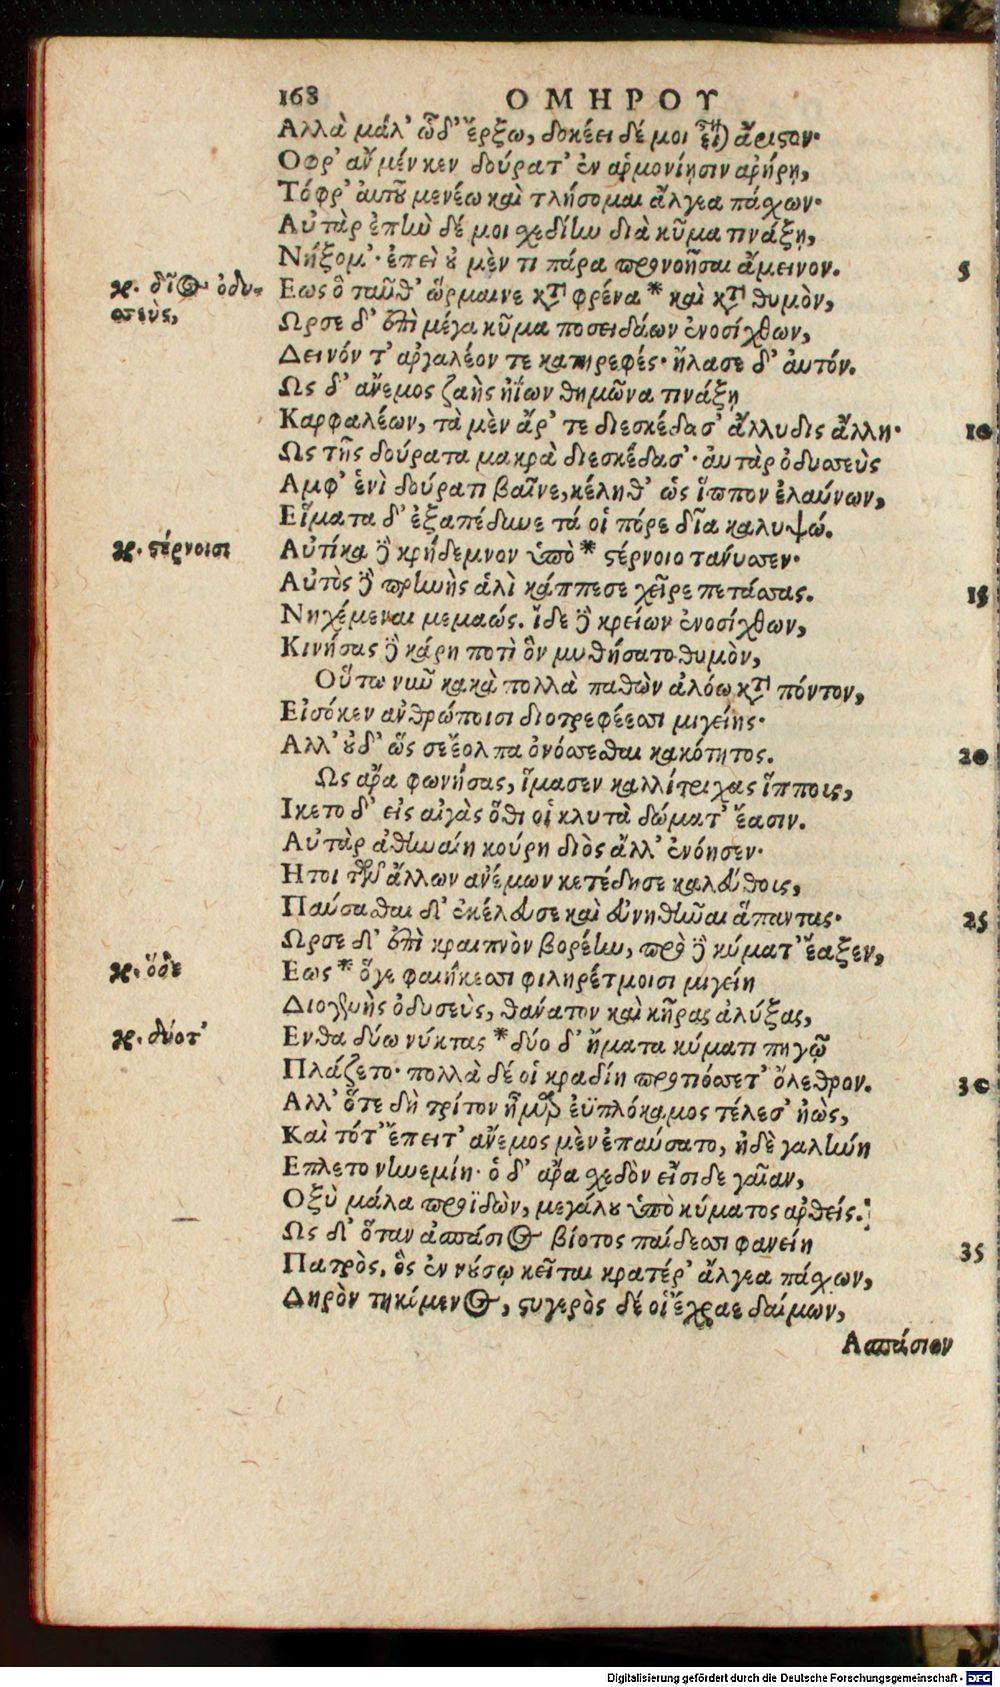 168 ΟΜΗΡΟΥ
Αλλὰ μάλ' ὧδ' ἔρξω, δοκέει δέ μοι εἶναι ἄριστον·
Οφρ' ἂν μέν κεν δούρατ' ἐν ἁρμονίησιν ἀρήρῃ,
Τόφρ' αὐτοῦ μενέω καὶ τλήσομαι ἄλγεα πάσχων·
Αὐτὰρ ἐπὴν δέ μοι σχεδίην διὰ κῦμα τινάξῃ,
Νήξομ'· ἐπεὶ οὐ μὲν τι πάρα προνοῆσαι ἄμεινον. 5
ϗ. δῖος ὀδυσ-
σεὺς,
Εως ὃ ταῦθ' ὥρμαινε κατὰ φρένα * καὶ κατὰ θυμὸν,
Ωρσε δ' ἐπὶ μέγα κῦμα ποσειδάων ἐνοσίχθων,
Δεινόν τ' ἀργαλέον τε κατηρεφές· ἤλασε δ' αὐτόν.
Ως δ' ἄνεμος ζαὴς ἠΐων θημῶνα τινάξῃ
Καρφαλέων, τὰ μὲν ἄρ' τε διεσκέδασ' ἄλλυδις ἄλλη· 10
Ως τῆς δούρατα μακρὰ διεσκέδασ'· αὐτὰρ ὀδυσσεὺς
Αμφ' ἑνὶ δούρατι βαῖνε, κέληθ' ὡς ἵππον ἐλαύνων,
Εἵματα δ' ἐξαπέδυνε τά οἱ πόρε δῖα καλυψώ.
ϗ. στέρνοισι
Αὐτίκα δὲ κρήδεμνον ὑπὸ * στέρνοιο τάνυσσεν·
Αὐτὸς δὲ πρηνὴς ἁλὶ κάππεσε χεῖρε πετάσσας. 15
Νηχέμεναι μεμαώς. ἴδε δὲ κρείων ἐνοσίχθων,
Κινήσας δὲ κάρη ποτὶ ὃν μυθήσατο θυμὸν,
Οὕτω νῦν κακὰ πολλὰ παθὼν ἀλόω κατὰ πόντον,
Εἰσόκεν ἀνθρώποισι διοτρεφέεσσι μιγείης·
Αλλ' οὐδ' ὥς σε ἔολπα ὀνόσσεσθαι κακότητος. 20
Ως ἄρα φωνήσας, ἵμασεν καλλίτριχας ἵππους,
Ικετο δ' εἰς αἰγὰς ὅθι οἱ κλυτὰ δώματ' ἔασιν.
Αὐτὰρ ἀθηναίη κούρη διὸς ἄλλ' ἐνόησεν·
Ητοι τῶν ἄλλων ἀνέμων κετέδησε κελεύθοις,
Παύσασθαι δ' ἐκέλευσε καὶ εὐνηθῆναι ἅπαντας· 25
Ωρσε δ' ἐπὶ κραιπνὸν βορέην, πρὸ δὲ κύματ' ἔαξεν,
ϗ. ὅδε
Εως * ὅγε φαιήκεσσι φιληρέτμοισι μιγείη
Διογενὴς ὀδυσεὺς, θάνατον καὶ κῆρας ἀλύξας,
ϗ. δύοτ'
Ενθα δύω νύκτας * δύο δ' ἤματα κύματι πηγῷ
Πλάζετο· πολλὰ δέ οἱ κραδίη προτιόσσετ' ὄλεθρον. 30
Αλλ' ὅτε δὴ τρίτον ἦμαρ ἐϋπλόκαμος τέλεσ' ἠὼς,
Καὶ τότ' ἔπειτ' ἄνεμος μὲν ἐπαύσατο, ἠδὲ γαλήνη
Επλετο νηνεμίη· ὁ δ' ἄρα σχεδὸν εἴσιδε γαῖαν,
Οξὺ μάλα προϊδὼν, μεγάλου ὑπὸ κύματος ἀρθείς.
Ως δ' ὅταν ἀσπάσιος βίοτος παίδεσσι φανείη 35
Πατρὸς, ὃς ἐν νούσῳ κεῖται κρατέρ' ἄλγεα πάσχων,
Δηρὸν τηκόμενος, στυγερὸς δέ οἱ ἔχραε δαίμων,
Ασπάσιον
Digitalisierung gefördert durch die Deutsche Forschungsgemeinschaft - DFG